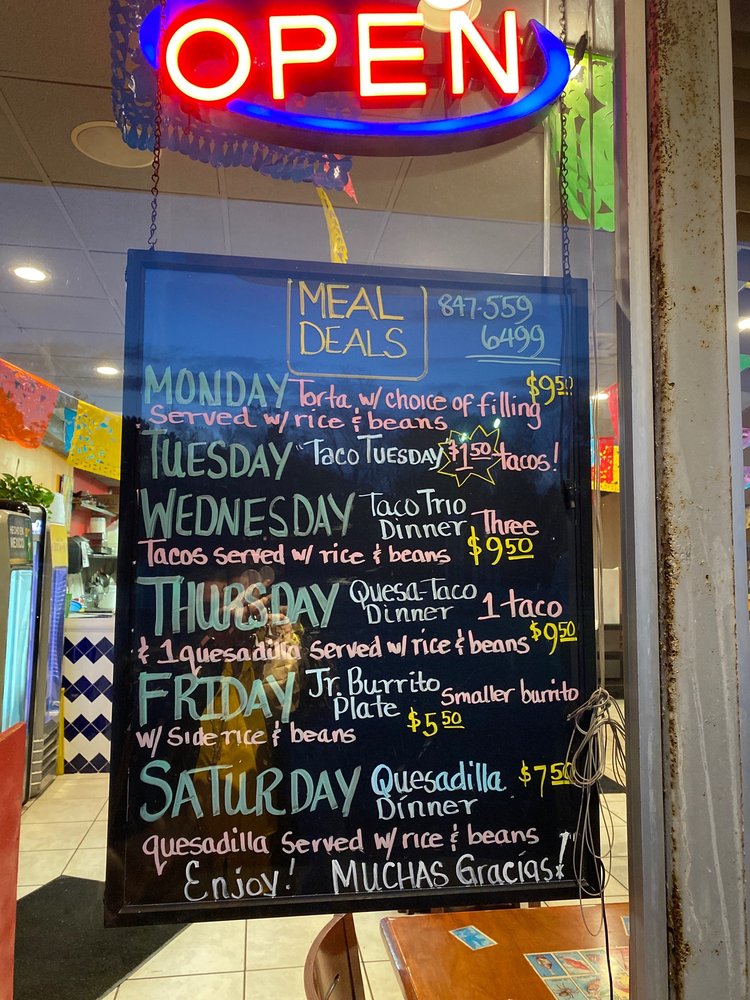 OPEN
MEAL
DEALS
847-559
6499
MONDAY Torta w/ choice of filling $9.50
Served w/ rice & beans
TUESDAY "Taco TUESDAY $1.50 tacos!
WEDNESDAY Taco Trio
Dinner Three
Tacos served w/ rice & beans $9.50
THURSDAY Quesa-Taco
Dinner 1 taco
& 1 quesadilla served w/ rice & beans $9.50
FRIDAY Jr. Burrito
Plate Smaller burrito
$5.50
w/ Side rice & beans
SATURDAY Quesadilla $7.50
Dinner
quesadilla Served w/ rice & beans
Enjoy! MUCHAS Gracias!
HECHO EN
MEXICO